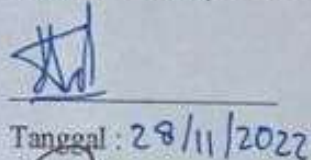 Tanggal : 28/11/2022